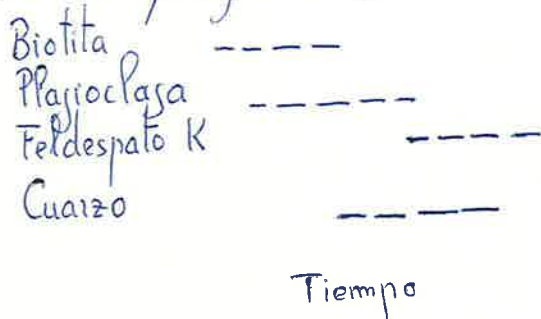 Biotita
Plagioclasa
Feldespato K
Cuarzo
Tiempo